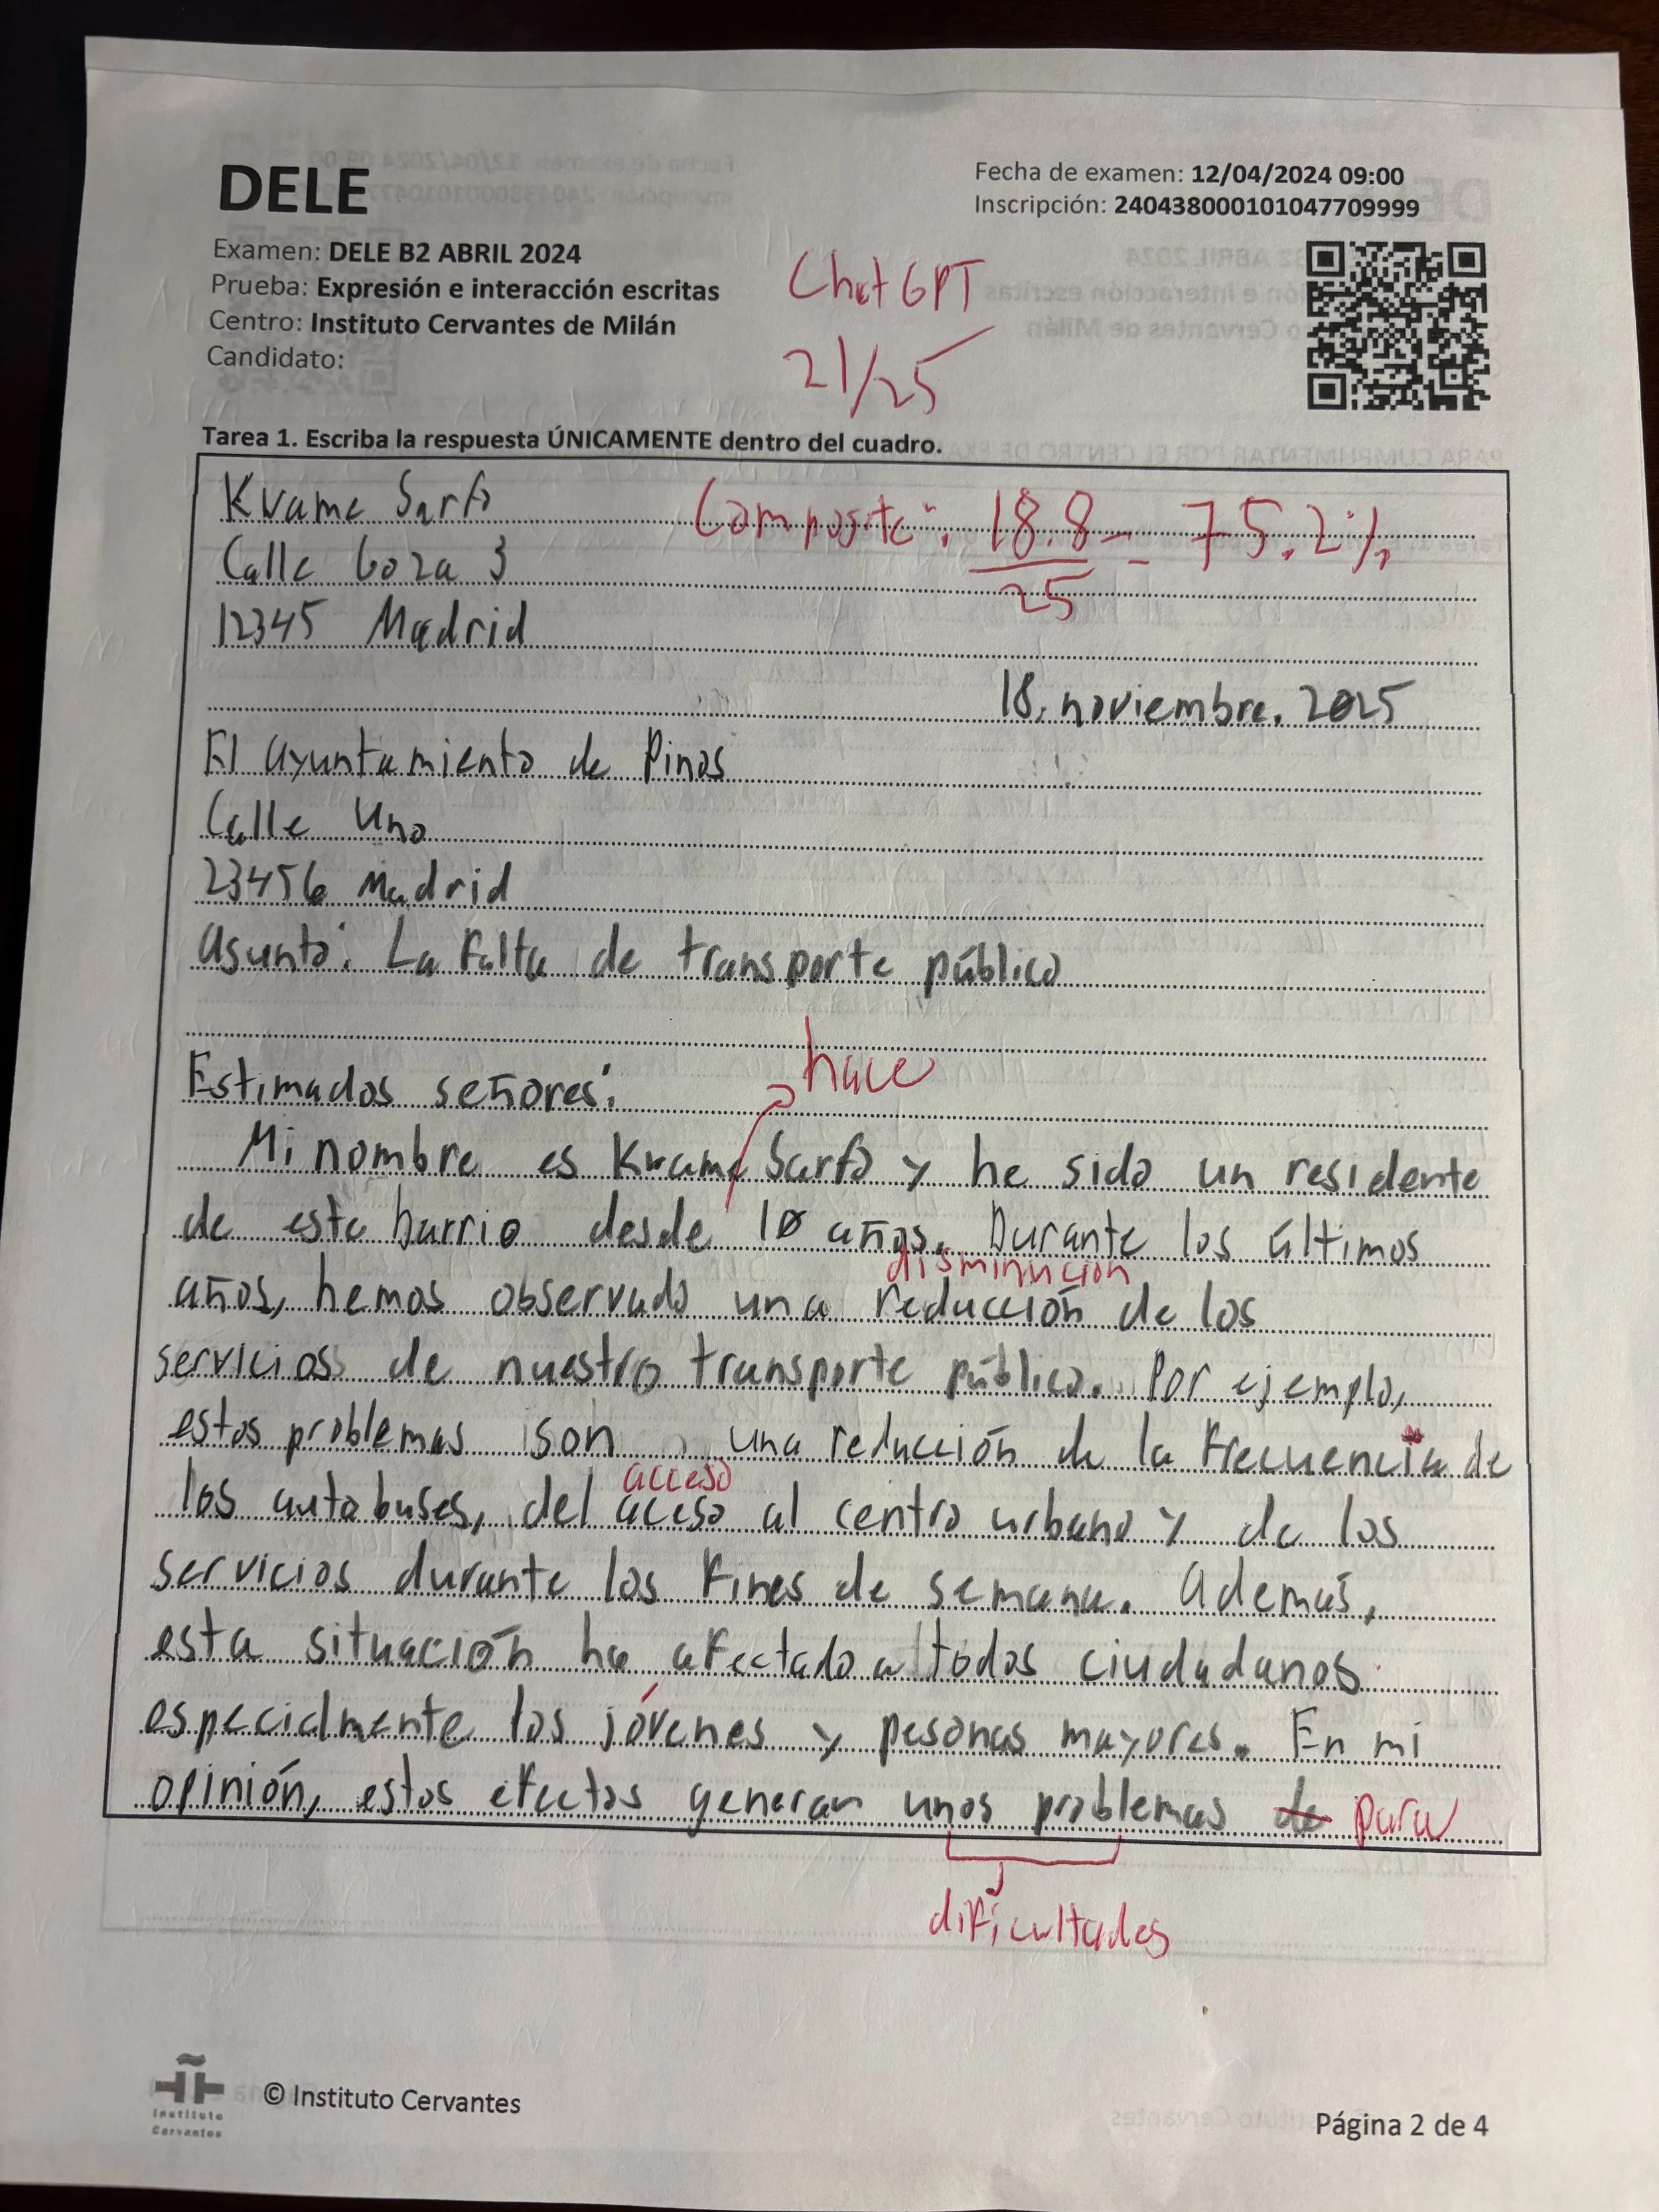 DELE
Fecha de examen: 12/04/2024 09:00
Inscripción: 240438000101047709999
Examen: DELE B2 ABRIL 2024
Prueba: Expresión e interacción escritas
Centro: Instituto Cervantes de Milán
Candidato:
ChatGPT
21/25
Tarea 1. Escriba la respuesta ÚNICAMENTE dentro del cuadro.
Kwame Sarfo
Composite: 18.8/25 = 75.2%
Calle Goza 3
12345 Madrid
18, noviembre, 2025
El ayuntamiento de Pinos
Calle Uno
23456 Madrid
Asunto: La falta de transporte público
hace
Estimados señores:
Mi nombre es Kwame Sarfo y he sido un residente
de este barrio desde 10 años. Durante los últimos
disminución
años, hemos observado una reducción de los
servicios de nuestro transporte público. Por ejemplo,
estos problemas son una reducción de la frecuencia de
acceso
los autobuses, del aceso al centro urbano y de los
servicios durante los fines de semana. Además,
esta situación ha afectado a todos ciudadanos
especialmente los jóvenes y pesonas mayores. En mi
opinión, estos efectos generan unos problemas de para
dificultades
Instituto
Cervantes
© Instituto Cervantes
Página 2 de 4